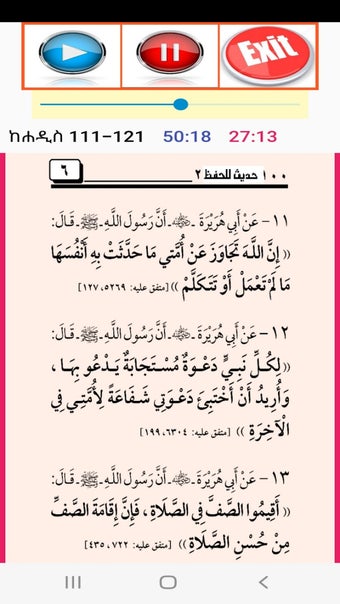 Exit
ከሐዲስ 111-121 50:18 27:13
١٠٠ حديث للحفظ ٢ ٦
١١- عَنْ أَبِي هُرَيْرَةَ -رضي الله عنه- أَنَّ رَسُولَ اللَّهِ -ﷺ- قَالَ:
((إِنَّ اللَّهَ تَجَاوَزَ عَنْ أُمَّتِي مَا حَدَّثَتْ بِهِ أَنْفُسَهَا
مَا لَمْ تَعْمَلْ أَوْ تَتَكَلَّمْ)) [متفق عليه: ٥٢٦٩، ١٢٧]
١٢- عَنْ أَبِي هُرَيْرَةَ -رضي الله عنه- أَنَّ رَسُولَ اللَّهِ -ﷺ- قَالَ:
((لِكُلِّ نَبِيٍّ دَعْوَةٌ مُسْتَجَابَةٌ يَدْعُو بِهَا،
وَأُرِيدُ أَنْ أَخْتَبِئَ دَعْوَتِي شَفَاعَةً لِأُمَّتِي فِي
الْآخِرَةِ)) [متفق عليه: ٦٣٠٤، ١٩٩]
١٣- عَنْ أَبِي هُرَيْرَةَ -رضي الله عنه- أَنَّ رَسُولَ اللَّهِ -ﷺ- قَالَ:
((أَقِيمُوا الصَّفَّ فِي الصَّلَاةِ، فَإِنَّ إِقَامَةَ الصَّفِّ
مِنْ حُسْنِ الصَّلَاةِ)) [متفق عليه: ٧٢٢، ٤٣٥]